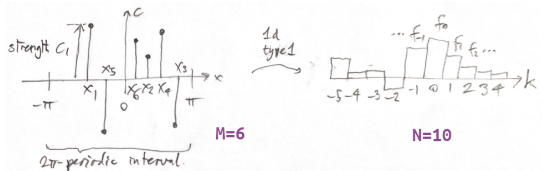 C
strength C₁
x₁ x₅ x₆ x₂ x₄ x₃ x
-π 0 π
2π-periodic interval.
M=6
1d
type1
... f₋₁ f₀ f₁ f₂ ...
-5 -4 -3 -2 -1 0 1 2 3 4 k
N=10